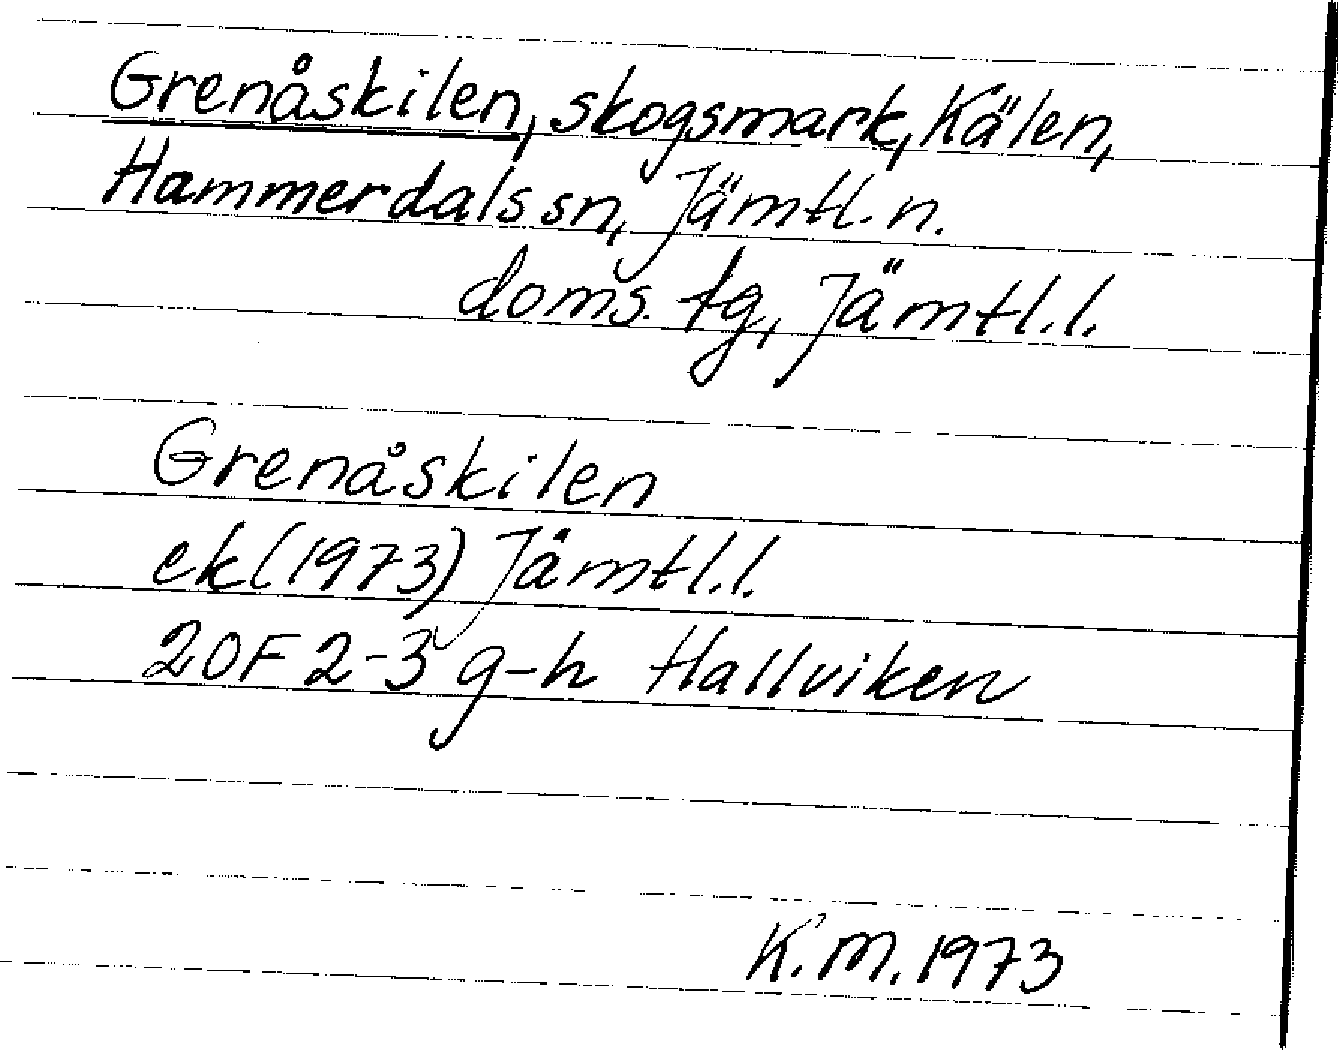 Grenåskilen, skogsmark, Kälen,
Hammerdals sn, Jämtl. n.
doms. tg, Jämtl. l.
Grenåskilen
ek (1973) Jämtl. l.
20F 2-3 g-h Hallviken
K. M. 1973